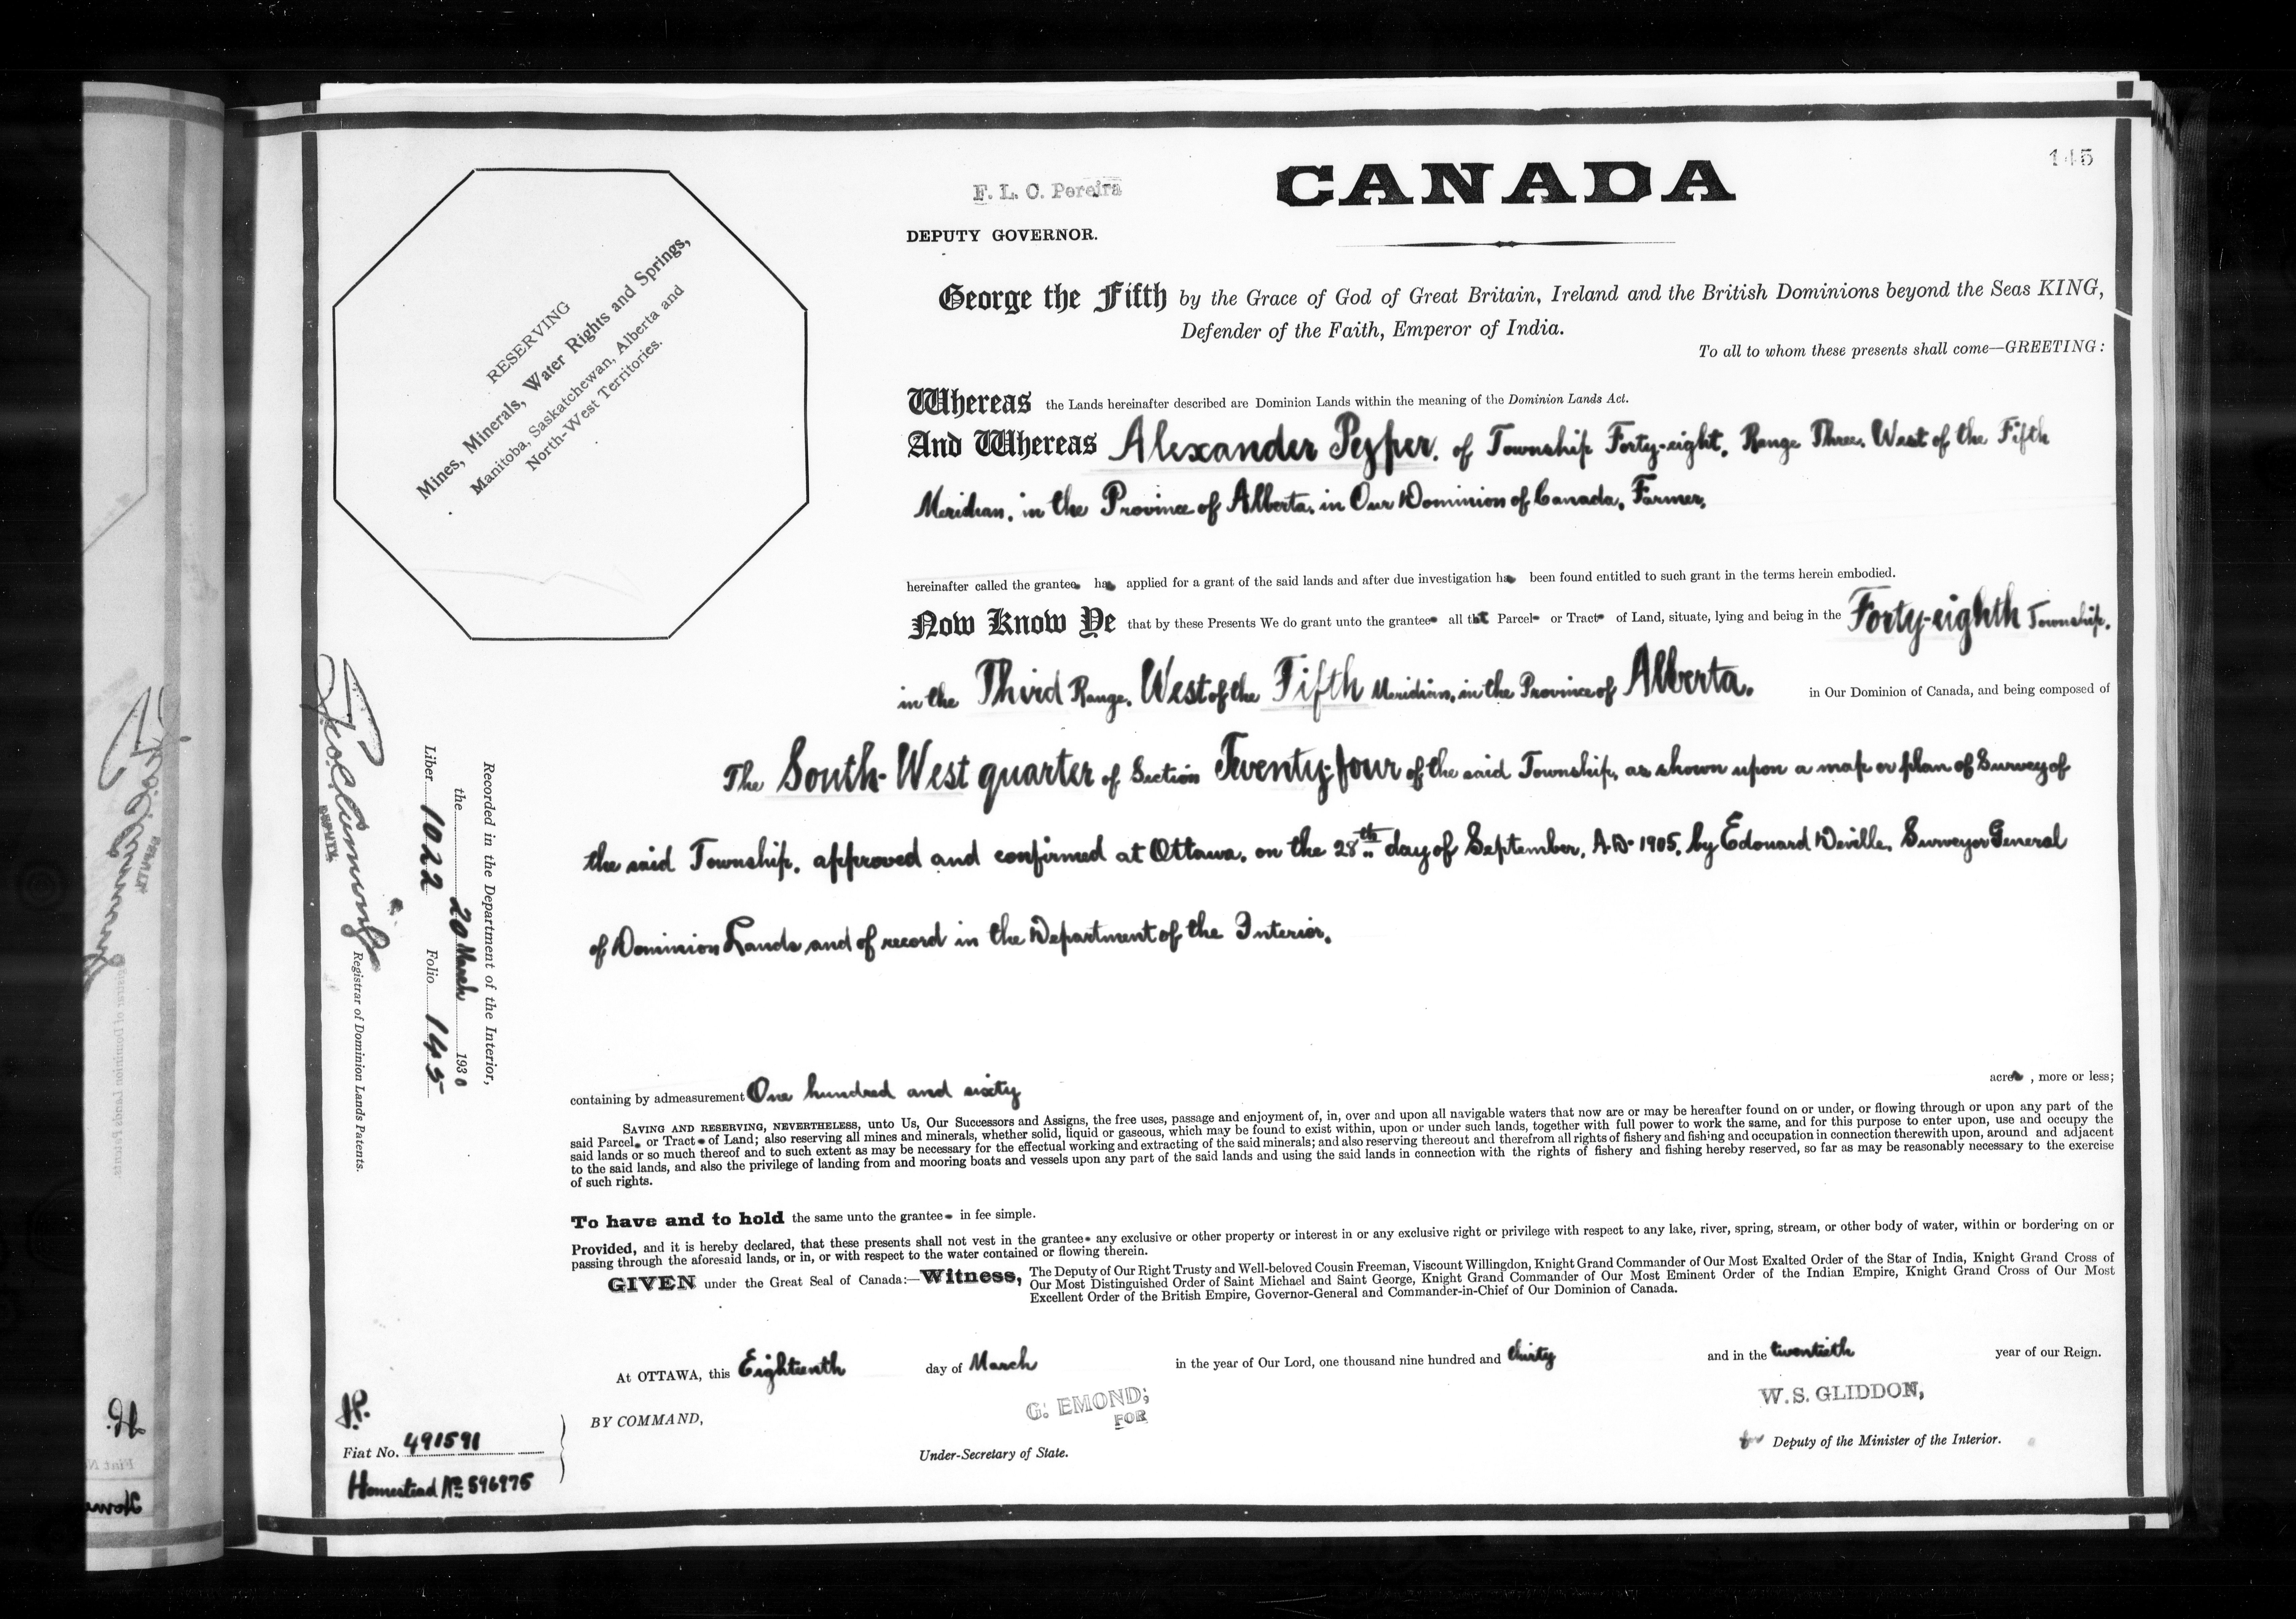 145
F. L. C. Pereira
CANADA
DEPUTY GOVERNOR.
RESERVING
Mines, Minerals, Water Rights and Springs,
Manitoba, Saskatchewan, Alberta and
North-West Territories.
George the Fifth by the Grace of God of Great Britain, Ireland and the British Dominions beyond the Seas KING,
Defender of the Faith, Emperor of India.
To all to whom these presents shall come—GREETING:
Whereas the Lands hereinafter described are Dominion Lands within the meaning of the Dominion Lands Act.
And Whereas Alexander Peyper, of Township Forty-eight, Range Three, West of the Fifth
Meridian, in the Province of Alberta, in Our Dominion of Canada, Farmer,
hereinafter called the grantee has applied for a grant of the said lands and after due investigation has been found entitled to such grant in the terms herein embodied.
Now Know Ye that by these Presents We do grant unto the grantee all that Parcel or Tract of Land, situate, lying and being in the Forty-eighth Township,
in the Third Range, West of the Fifth Meridian, in the Province of Alberta, in Our Dominion of Canada, and being composed of
The South-West quarter of Section Twenty-four of the said Township, as shown upon a map or plan of Survey of
the said Township, approved and confirmed at Ottawa, on the 28th day of September, A.D. 1905, by Edouard Deville, Surveyor General
of Dominion Lands and of record in the Department of the Interior.
containing by admeasurement One hundred and sixty acres, more or less;
SAVING AND RESERVING, NEVERTHELESS, unto Us, Our Successors and Assigns, the free uses, passage and enjoyment of, in, over and upon all navigable waters that now are or may be hereafter found on or under, or flowing through or upon any part of the
said Parcel or Tract of Land; also reserving all mines and minerals, whether solid, liquid or gaseous, which may be found to exist within, upon or under such lands, together with full power to work the same, and for this purpose to enter upon, use and occupy the
said lands or so much thereof and to such extent as may be necessary for the effectual working and extracting of the said minerals; and also reserving thereout and therefrom all rights of fishery and fishing and occupation in connection therewith upon, around and adjacent
to the said lands, and also the privilege of landing from and mooring boats and vessels upon any part of the said lands and using the said lands in connection with the rights of fishery and fishing hereby reserved, so far as may be reasonably necessary to the exercise
of such rights.
To have and to hold the same unto the grantee in fee simple.
Provided, and it is hereby declared, that these presents shall not vest in the grantee any exclusive or other property or interest in or any exclusive right or privilege with respect to any lake, river, spring, stream, or other body of water, within or bordering on or
passing through the aforesaid lands, or in, or with respect to the water contained or flowing therein.
GIVEN under the Great Seal of Canada:—Witness, The Deputy of Our Right Trusty and Well-beloved Cousin Freeman, Viscount Willingdon, Knight Grand Commander of Our Most Exalted Order of the Star of India, Knight Grand Cross of
Our Most Distinguished Order of Saint Michael and Saint George, Knight Grand Commander of Our Most Eminent Order of the Indian Empire, Knight Grand Cross of Our Most
Excellent Order of the British Empire, Governor-General and Commander-in-Chief of Our Dominion of Canada.
At OTTAWA, this Eighteenth day of March in the year of Our Lord, one thousand nine hundred and thirty and in the twentieth year of our Reign.
BY COMMAND,
G. EMOND,
FOR
Under-Secretary of State.
W. S. GLIDDON,
for Deputy of the Minister of the Interior.
J.P.
Fiat No. 491591
Homestead No. 596975
Recorded in the Department of the Interior,
the 20 March 1930
Liber 1022 Folio 145
Geo. C. Cumming
DEPUTY
Registrar of Dominion Lands Patents.